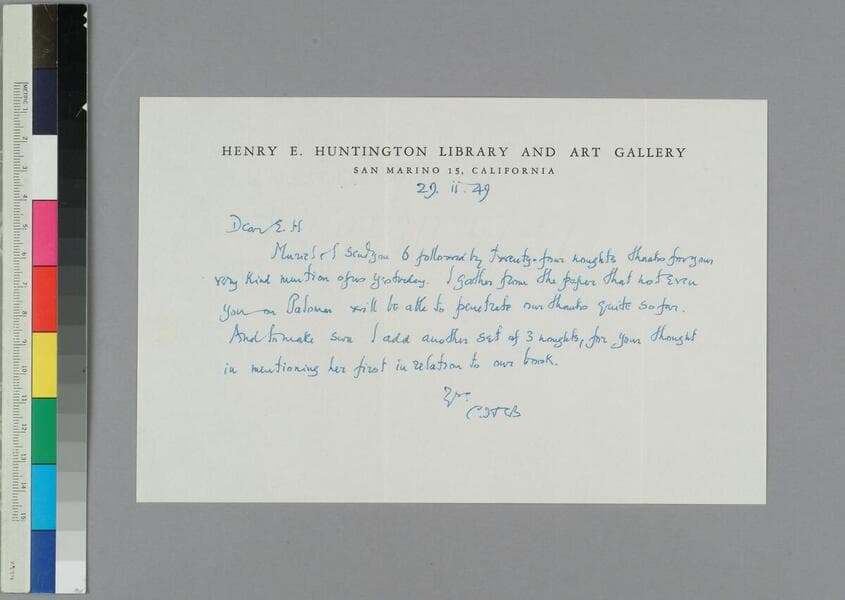 HENRY E. HUNTINGTON LIBRARY AND ART GALLERY
SAN MARINO 15, CALIFORNIA
29. II. 49
Dear E. H
Muriel & I send you 6 followed by twenty-four noughts thanks for your
very kind mention of us yesterday. I gather from the paper that not even
you on Palomar will be able to penetrate our thanks quite so far.
And to make sure I add another set of 3 noughts, for your thought
in mentioning her first in relation to our book.